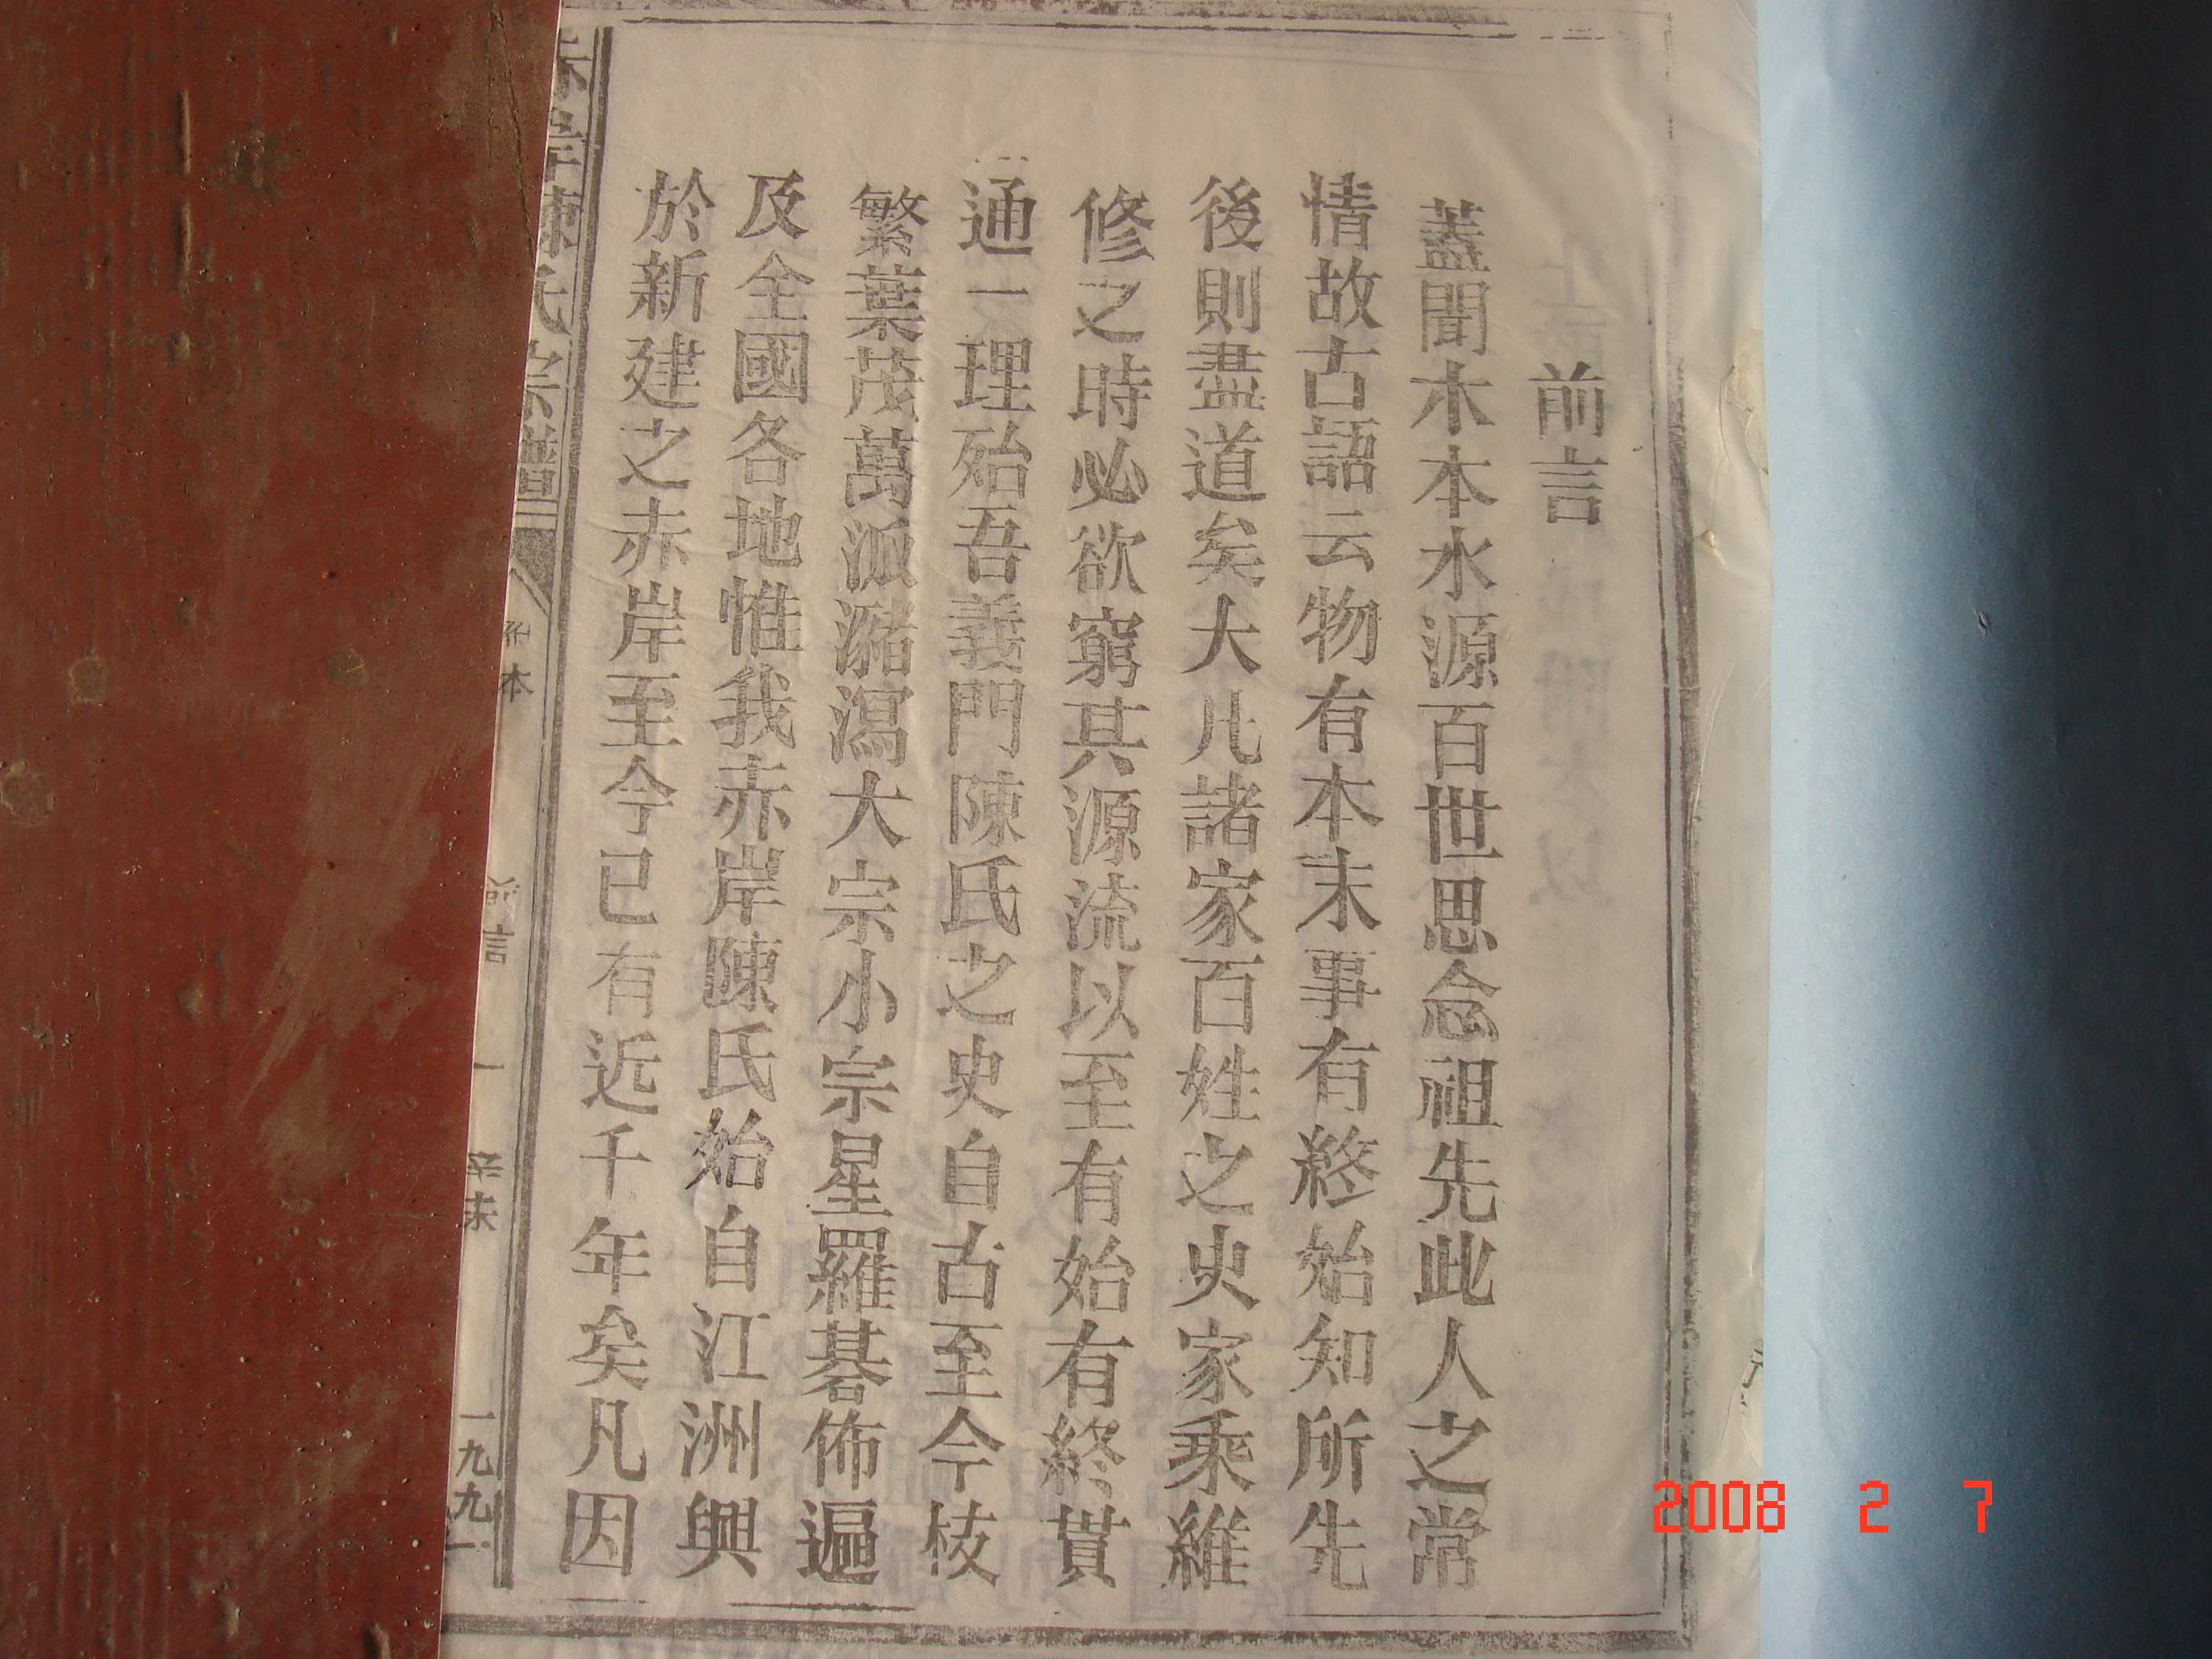 前言
蓋聞木本水源百世思念祖先此人之常
情故古語云物有本末事有終始知所先
後則盡道矣大凡諸家百姓之史家乘維
修之時必欲窮其源流以至有始有終貫
通一理殆吾義門陳氏之史自古至今枝
繁葉茂萬派瀦瀉大宗小宗星羅碁佈遍
及全國各地惟我赤岸陳氏始自江洲興
於新建之赤岸至今已有近千年矣凡因
赤岸陳氏宗譜
本
前言
一
辛未
一九九一
2008 2 7